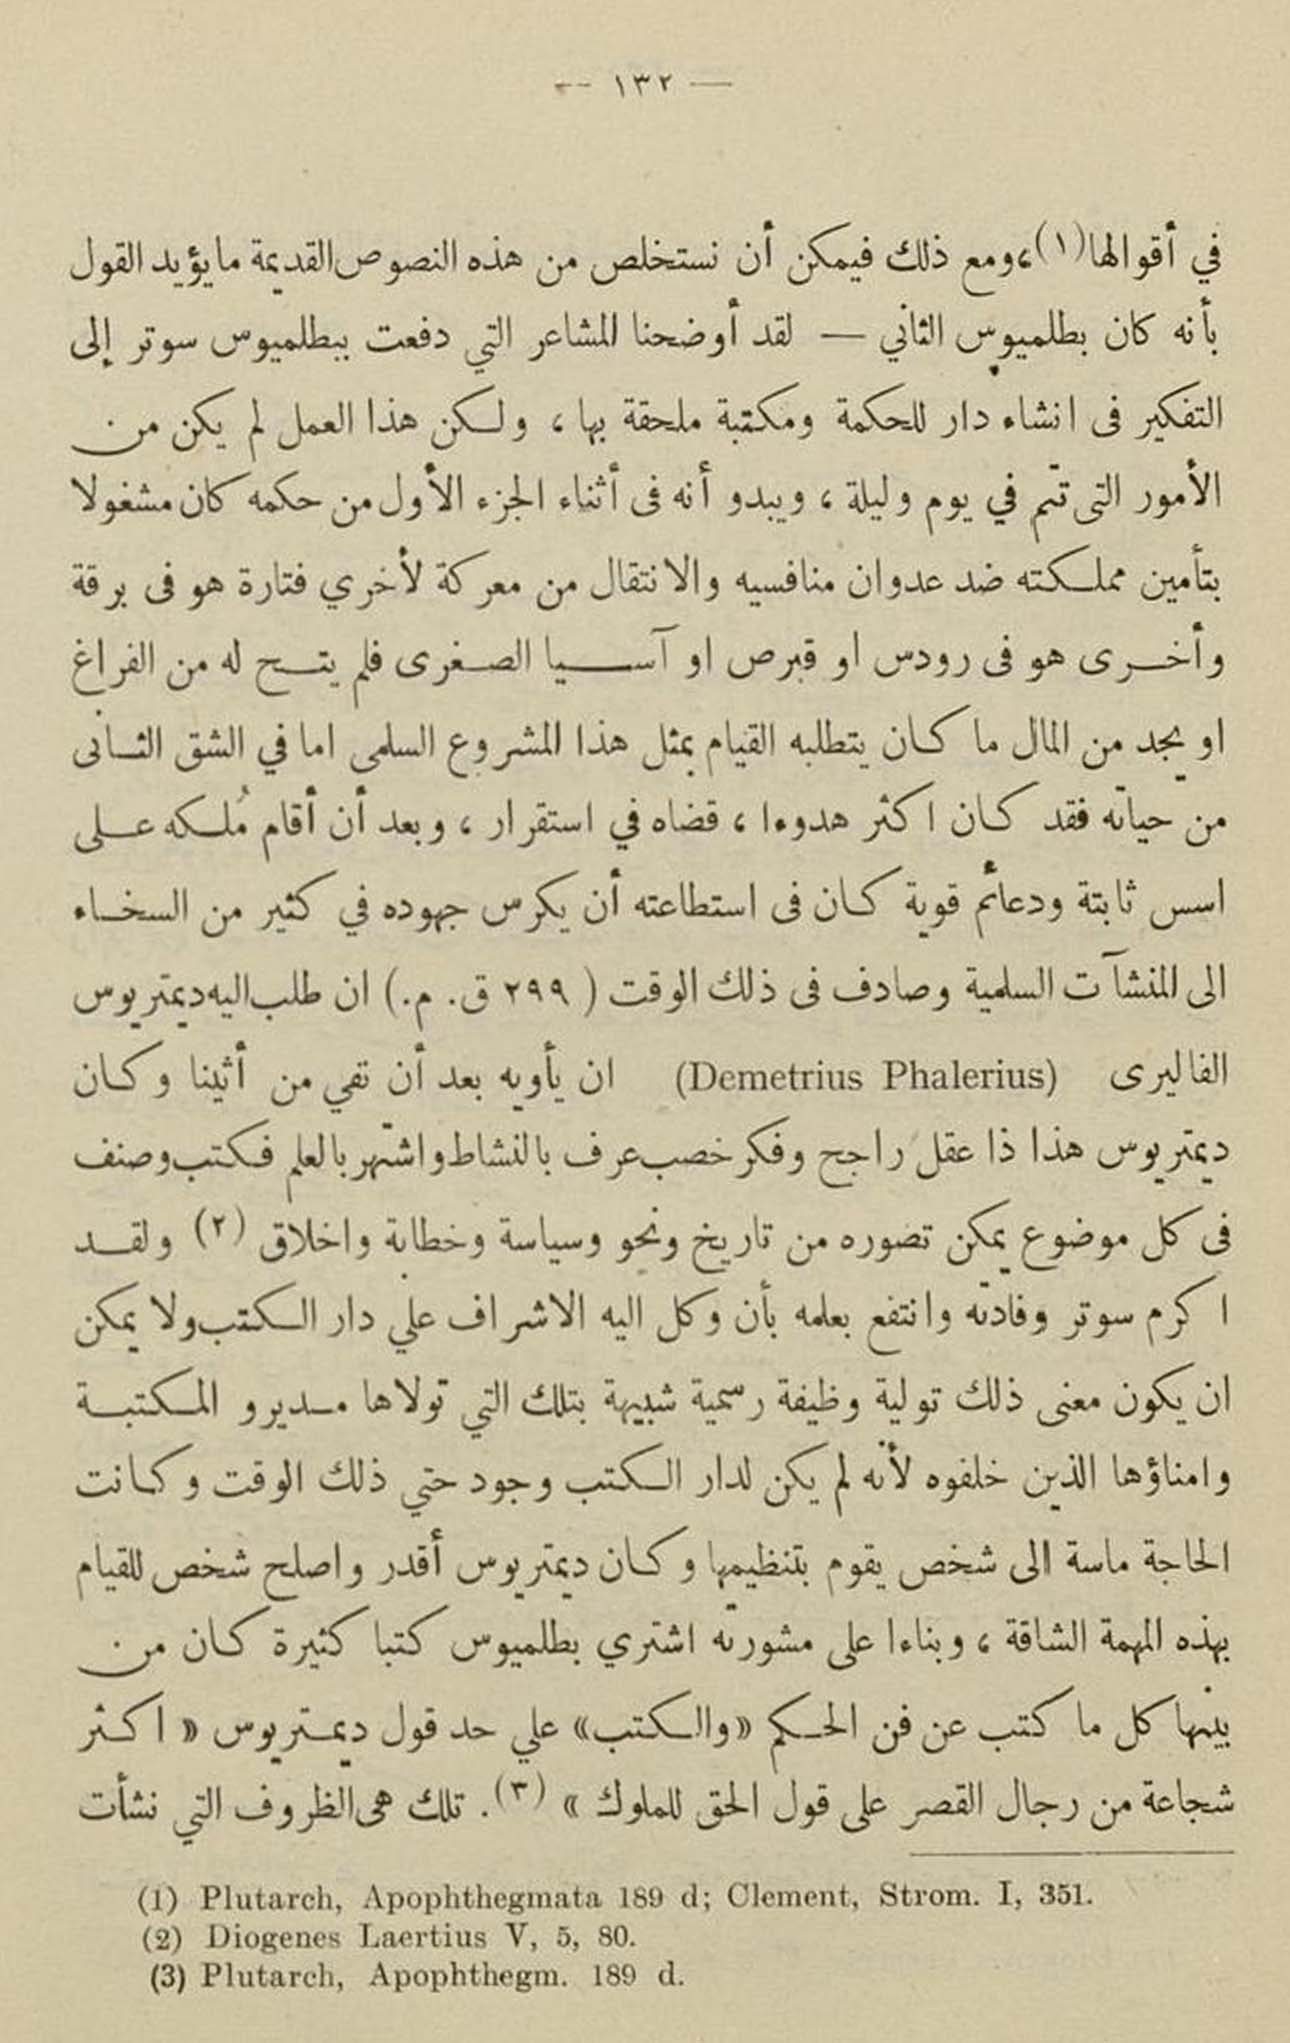 — ١٣٢ —
في أقوالها(١)، ومع ذلك فيمكن أن نستخلص من هذه النصوص القديمة ما يؤيد القول
بأنه كان بطلميوس الثاني — لقد أوضحنا المشاعر التي دفعت ببطلميوس سوتر إلى
التفكير فى انشاء دار للحكمة ومكتبة ملحقة بها ، ولكن هذا العمل لم يكن من
الأمور التى تتم في يوم وليلة ، ويبدو أنه فى أثناء الجزء الأول من حكمه كان مشغولا
بتأمين مملكته ضد عدوان منافسيه والانتقال من معركة لأخري فتارة هو فى برقة
وأخرى هو فى رودس او قبرص او آسيا الصغرى فلم يتح له من الفراغ
او يجد من المال ما كان يتطلبه القيام بمثل هذا المشروع السلمى اما في الشق الثانى
من حياته فقد كان اكثر هدوءا ، قضاه في استقرار ، وبعد أن أقام مُلكه على
اسس ثابتة ودعائم قوية كان فى استطاعته أن يكرس جهوده في كثير من السخاء
الى المنشآت السلمية وصادف فى ذلك الوقت ( ٢٩٩ ق. م.) ان طلب اليه ديمتريوس
الفاليرى (Demetrius Phalerius) ان يأويه بعد أن نفي من أثينا وكان
ديمتريوس هذا ذا عقل راجح وفكر خصب عرف بالنشاط واشتهر بالعلم فكتب وصنف
فى كل موضوع يمكن تصوره من تاريخ ونحو وسياسة وخطابة واخلاق (٢) ولقد
اكرم سوتر وفادته وانتفع بعلمه بأن وكل اليه الاشراف علي دار الكتب ولا يمكن
ان يكون معنى ذلك تولية وظيفة رسمية شبيهة بتلك التي تولاها مديرو المكتبة
وامناؤها الذين خلفوه لأنه لم يكن لدار الكتب وجود حتي ذلك الوقت وكانت
الحاجة ماسة الى شخص يقوم بتنظيمها وكان ديمتريوس أقدر واصلح شخص للقيام
بهذه المهمة الشاقة ، وبناءا على مشورته اشتري بطلميوس كتبا كثيرة كان من
بينها كل ما كتب عن فن الحكم «والكتب» علي حد قول ديمتريوس « اكثر
شجاعة من رجال القصر على قول الحق للملوك » (٣). تلك هى الظروف التي نشأت
(1) Plutarch, Apophthegmata 189 d; Clement, Strom. I, 351.
(2) Diogenes Laertius V, 5, 80.
(3) Plutarch, Apophthegm. 189 d.